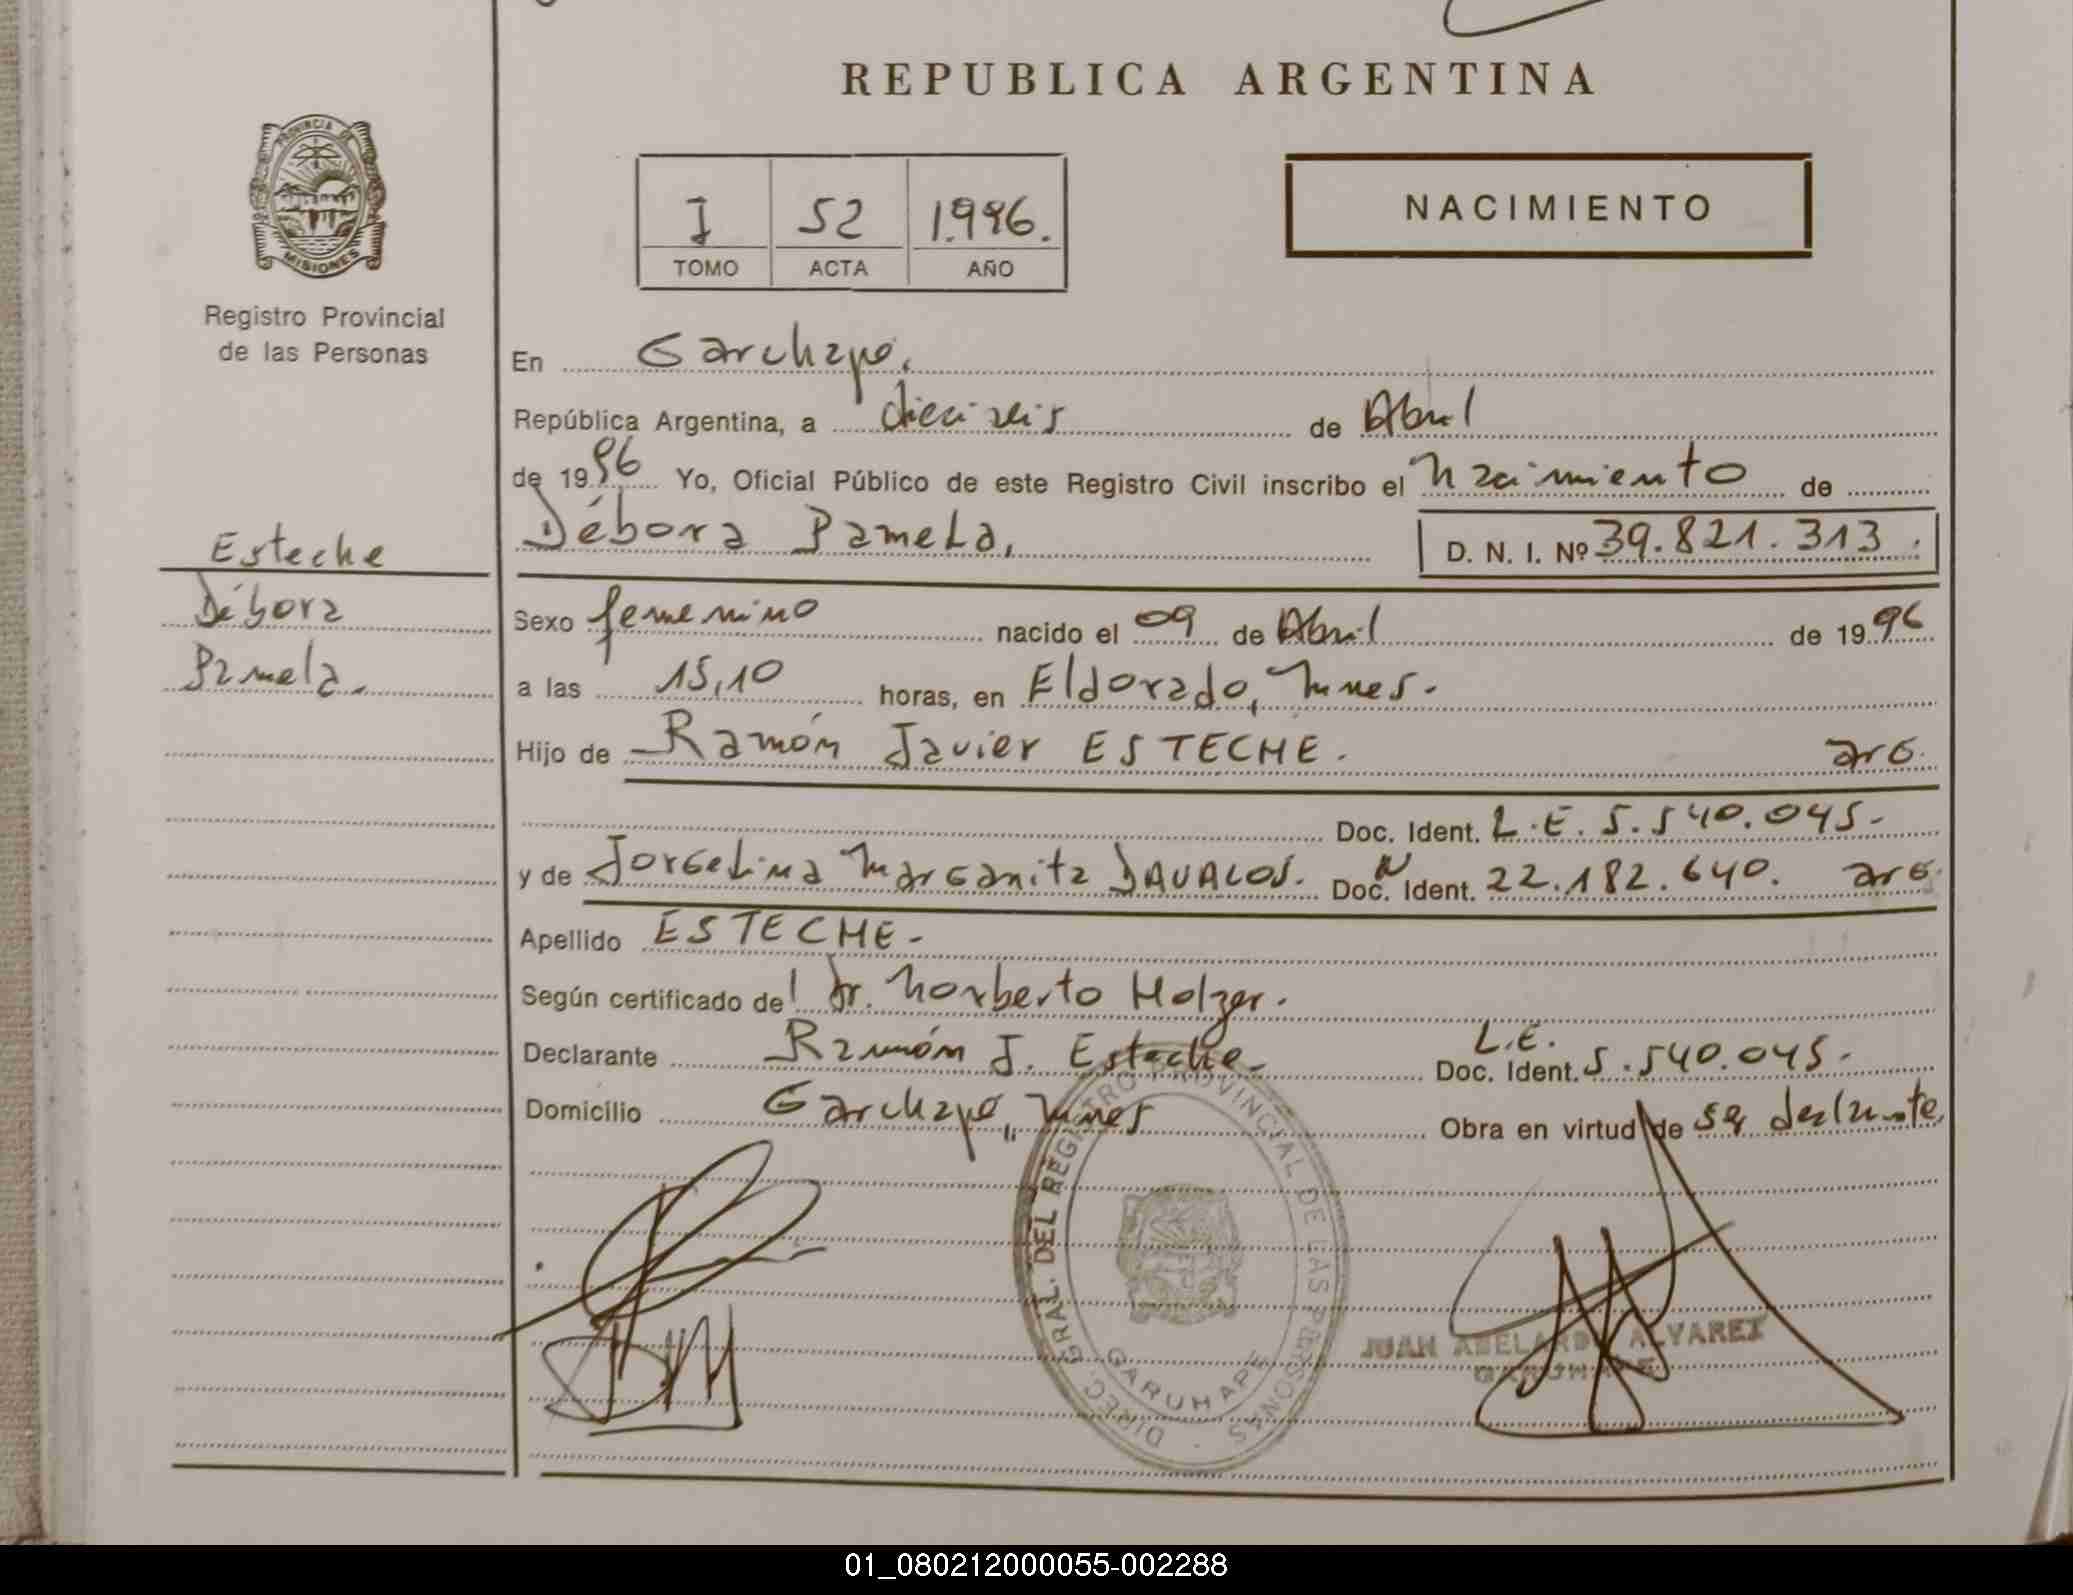 REPUBLICA ARGENTINA
PROVINCIA DE
MISIONES
Registro Provincial
de las Personas
I 52 1.996.
TOMO ACTA AÑO
NACIMIENTO
En Garuhapé.
República Argentina, a dieciseis de Abril
de 1996 Yo, Oficial Público de este Registro Civil inscribo el Nacimiento de
Débora Pamela, D. N. I. Nº 39.821.313.
Esteche
Débora
Pamela.
Sexo femenino nacido el 09 de Abril de 1996
a las 15,10 horas, en Eldorado, Mnes.
Hijo de Ramón Javier ESTECHE. arG.
Doc. Ident. L.E. 5.540.045.
y de Jorgelina Margarita DAVALOS. Doc. Ident. N 22.182.640. arG.
Apellido ESTECHE.
Según certificado del Dr. Norberto Holzer.
Declarante Ramón J. Esteche. Doc. Ident. L.E. 5.540.045.
Domicilio Garuhapé, Mnes Obra en virtud de
DIREC. GRAL. DEL REGISTRO PROVINCIAL DE LAS PERSONAS
GARUHAPE
JUAN ABELARDO ALVAREZ
GARUHAPE
01_080212000055-002288